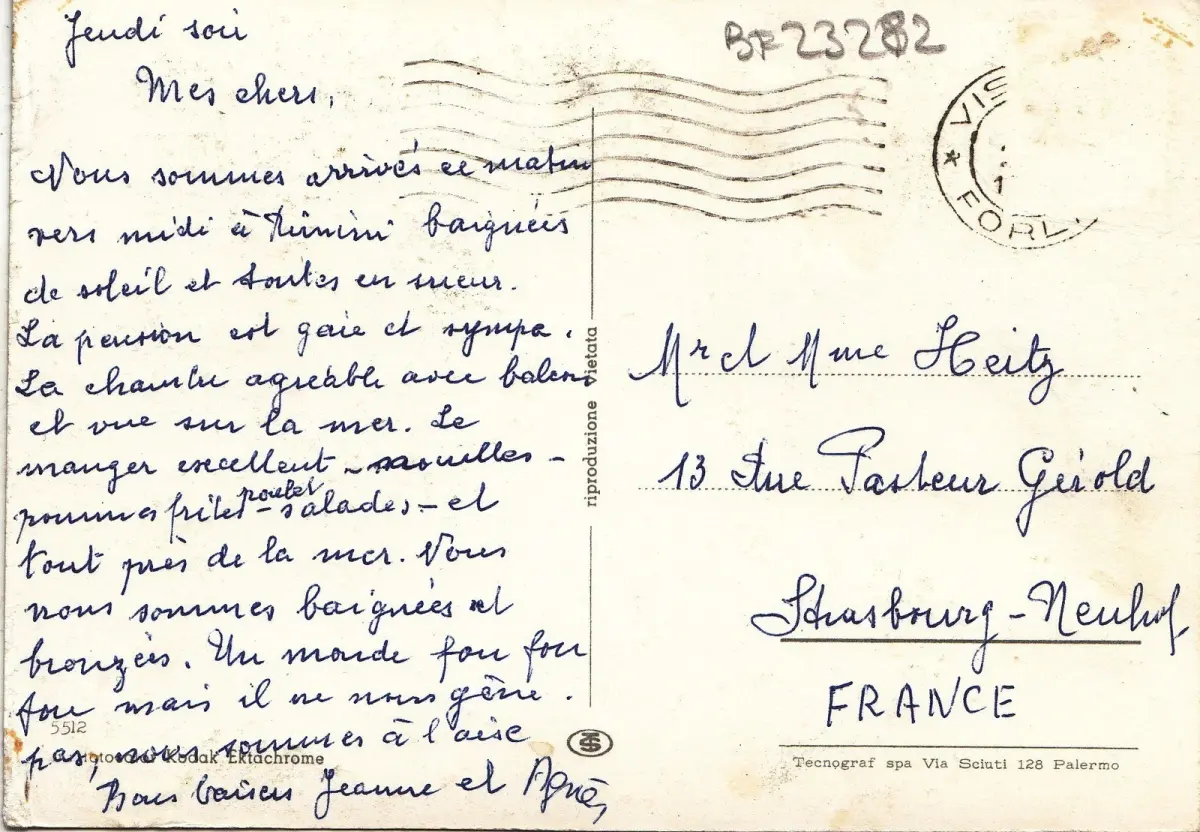 Jeudi soir
BF 23282
Mes chers,
Nous sommes arrivés ce matin
vers midi à Rimini baignées
de soleil et toutes en sueur.
La pension est gaie et sympa.
La chambre agréable avec balcon
et vue sur la mer. Le
manger excellent - nouilles -
pommes frites - poulet salades - et
tout près de la mer. Nous
nous sommes baignées et
bronzées. Un monde fou fou
fou mais il ne nous gène.
pas, nous sommes à l'aise
Bons baisers Jeanne et Agnès
5512
Kodak Ektachrome
riproduzione vietata
VIS
* FORLI
1
Mr et Mme Heitz
13 Rue Pasteur Gérold
Strasbourg-Neuhof
FRANCE
Tecnograf spa Via Sciuti 128 Palermo